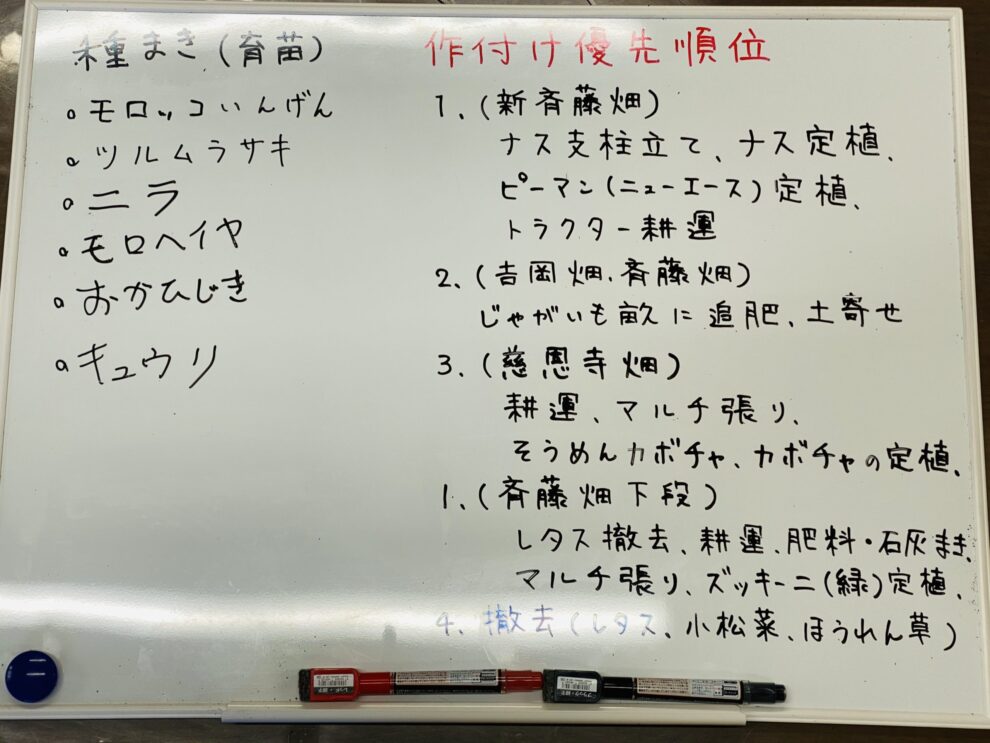 種まき(育苗)
。モロッコいんげん
。ツルムラサキ
。ニラ
。モロヘイヤ
。おかひじき
。キュウリ
作付け優先順位
1.(新斉藤畑)
ナス支柱立て、ナス定植、
ピーマン(ニューエース)定植、
トラクター耕運
2.(吉岡畑.斉藤畑)
じゃがいも畝に追肥、土寄せ
3.(慈恩寺畑)
耕運、マルチ張り、
そうめんカボチャ、カボチャの定植、
1.(斉藤畑下段)
レタス撤去、耕運、肥料・石灰まき、
マルチ張り、ズッキーニ(緑)定植、
4.撤去(レタス、小松菜、ほうれん草)